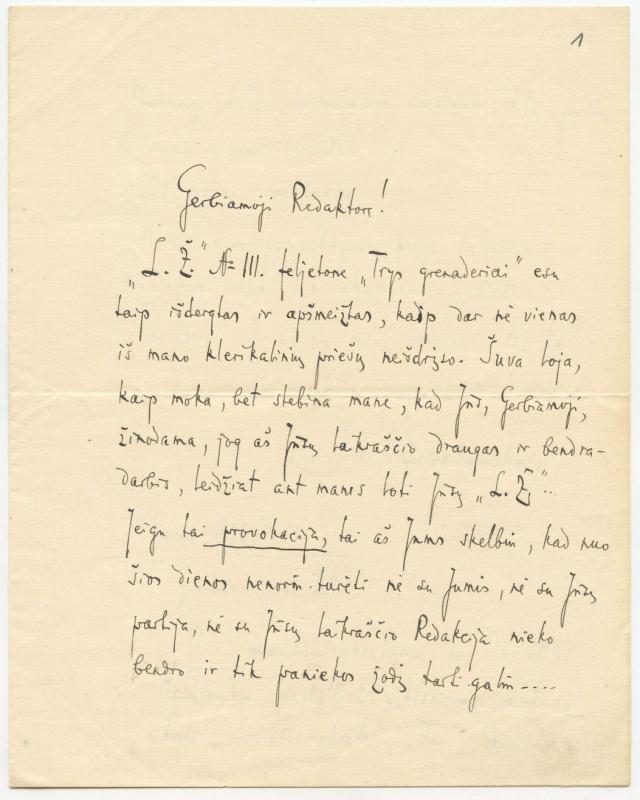 1
Gerbiamoji Redaktore!
„L. Ž." № III. feljetone „Trys grenaderiai" esu
taip išdergtas ir apšmeižtas, kaip dar nė vienas
iš mano klerikalinių priešų neišdrįso. Šuva loja,
kaip moka, bet stebina mane, kad Jūs, Gerbiamoji,
žinodama, jog aš Jūsų laikraščio draugas ir bendra-
darbis, leidžiat ant manęs loti Jūsų „L. Ž."...
Jeigu tai provokacija, tai aš Jums skelbiu, kad nuo
šios dienos nenoriu turėti nė su Jumis, nė su Jūsų
partija, nė su Jūsų laikraščio Redakcija nieko
bendro ir tik paniekos žodį tarti galiu....